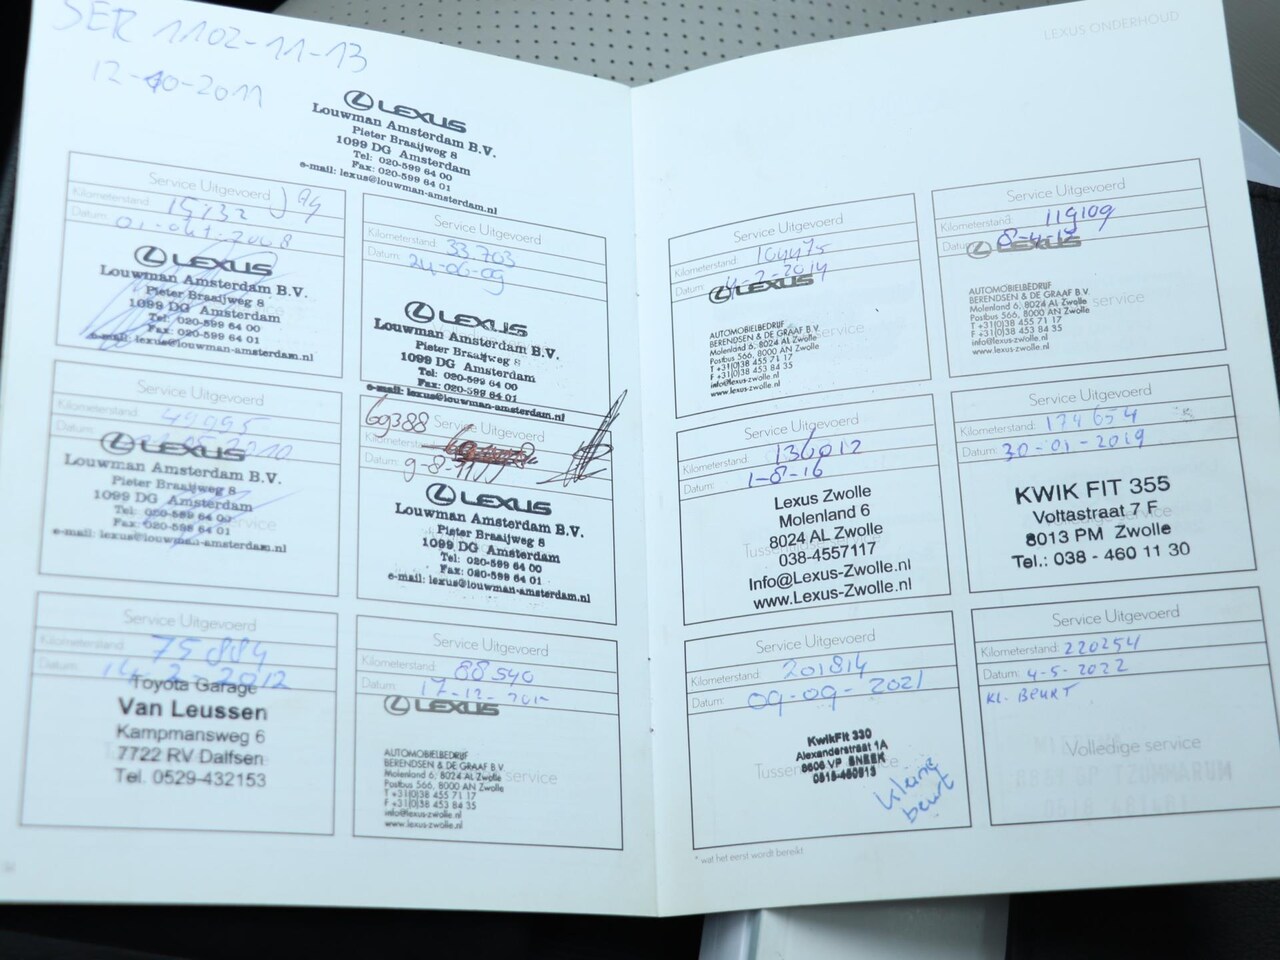 SER 1102-11-13
12-10-2011
LEXUS
Louwman Amsterdam B.V.
Pieter Braaijweg 8
1099 DG Amsterdam
Tel: 020-599 64 00
Fax: 020-599 64 01
e-mail: lexus@louwman-amsterdam.nl
Service Uitgevoerd
Kilometerstand:
Datum: 01-okt-2008
LEXUS
Louwman Amsterdam B.V.
Pieter Braaijweg 8
1099 DG Amsterdam
Tel: 020-599 64 00
Fax: 020-599 64 01
e-mail: lexus@louwman-amsterdam.nl
Service Uitgevoerd
Kilometerstand: 33.703
Datum: 24-06-09
LEXUS
Louwman Amsterdam B.V.
Pieter Braaijweg 8
1099 DG Amsterdam
Tel: 020-599 64 00
Fax: 020-599 64 01
e-mail: lexus@louwman-amsterdam.nl
Service Uitgevoerd
Kilometerstand: 49095
Datum:
LEXUS
Louwman Amsterdam B.V.
Pieter Braaijweg 8
1099 DG Amsterdam
Tel: 020-599 64 00
Fax: 020-599 64 01
e-mail: lexus@louwman-amsterdam.nl
69388
Service Uitgevoerd
Kilometerstand:
Datum: 9-8-11
LEXUS
Louwman Amsterdam B.V.
Pieter Braaijweg 8
1099 DG Amsterdam
Tel: 020-599 64 00
Fax: 020-599 64 01
e-mail: lexus@louwman-amsterdam.nl
Service Uitgevoerd
Kilometerstand: 75884
Datum: 14-2-2012
Toyota Garage
Van Leussen
Kampmansweg 6
7722 RV Dalfsen
Tel. 0529-432153
Service Uitgevoerd
Kilometerstand: 88540
Datum: 17-12-
LEXUS
AUTOMOBIELBEDRIJF
BERENDSEN & DE GRAAF B.V.
Molenland 6, 8024 AL Zwolle
Postbus 566, 8000 AN Zwolle
T +31(0)38 455 71 17
F +31(0)38 453 84 35
info@lexus-zwolle.nl
www.lexus-zwolle.nl
service
LEXUS ONDERHOUD
Service Uitgevoerd
Kilometerstand: 104475
Datum: 4-2-2014
LEXUS
AUTOMOBIELBEDRIJF
BERENDSEN & DE GRAAF B.V.
Molenland 6, 8024 AL Zwolle
Postbus 566, 8000 AN Zwolle
T +31(0)38 455 71 17
F +31(0)38 453 84 35
info@lexus-zwolle.nl
www.lexus-zwolle.nl
service
Service Uitgevoerd
Kilometerstand: 119109
Datum:
LEXUS
AUTOMOBIELBEDRIJF
BERENDSEN & DE GRAAF B.V.
Molenland 6, 8024 AL Zwolle
Postbus 566, 8000 AN Zwolle
T +31(0)38 455 71 17
F +31(0)38 453 84 35
info@lexus-zwolle.nl
www.lexus-zwolle.nl
service
Service Uitgevoerd
Kilometerstand: 136012
Datum: 1-8-16
Lexus Zwolle
Molenland 6
8024 AL Zwolle
038-4557117
Info@Lexus-Zwolle.nl
www.Lexus-Zwolle.nl
Service Uitgevoerd
Kilometerstand: 174654
Datum: 30-01-2019
KWIK FIT 355
Voltastraat 7 F
8013 PM Zwolle
Tel.: 038 - 460 11 30
Service Uitgevoerd
Kilometerstand: 201814
Datum: 09-09-2021
KwikFit 330
Alexanderstraat 1A
8606 VP SNEEK
kleine
beurt
Service Uitgevoerd
Kilometerstand: 220254
Datum: 4-5-2022
KL. BEURT
Volledige service
* wat het eerst wordt bereikt